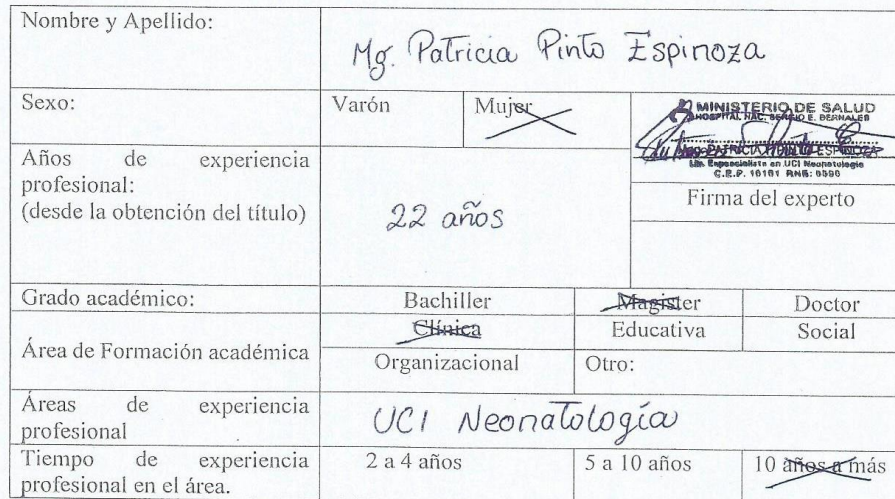 Nombre y Apellido:
Mg. Patricia Pinto Espinoza
Sexo:
Varón
Mujer
MINISTERIO DE SALUD
HOSPITAL NAC. SERGIO E. BERNALES
PATRICIA PINTO ESPINOZA
Lic. Especialista en UCI Neonatología
C.E.P. 16101 RNE: 6590
Firma del experto
Años de experiencia
profesional:
(desde la obtención del título)
22 años
Grado académico:
Bachiller
Magister
Doctor
Área de Formación académica
Clínica
Educativa
Social
Organizacional
Otro:
Áreas de experiencia
profesional
UCI Neonatología
Tiempo de experiencia
profesional en el área.
2 a 4 años
5 a 10 años
10 años a más